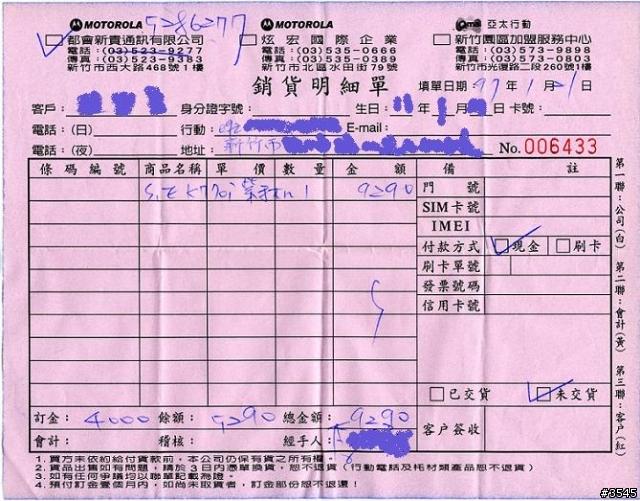 MOTOROLA 5286277 MOTOROLA 亞太行動
都會新貴通訊有限公司 炫宏國際企業 新竹園區加盟服務中心
電話:(03)523-9277 電話:(03)535-0666 電話:(03)573-9898
傳真:(03)523-9383 傳真:(03)535-0389 傳真:(03)573-0803
新竹市西大路468號1樓 新竹市北區水田街79號 新竹市光復路二段260號1樓
銷貨明細單 填單日期:97/1/21
客戶: 身分證字號: 生日: 年 月 日 卡號:
電話:(日) 行動: E-mail:
電話:(夜) 地址: 新竹市 No.006433
條碼編號 商品名稱 單價 數量 金額 備註
S.E K770i 1 9290 門號
SIM卡號
IMEI
付款方式 ☑現金 □刷卡
刷卡單號
發票號碼
信用卡號
□已交貨 ☑未交貨
訂金: 4000 餘額: 5290 總金額: 9290
會計: 稽核: 經手人: 客戶簽收
第一聯:公司(白) 第二聯:會計(黃) 第三聯:客戶(紅)
1.買方未依約給付貨款前,本公司仍保有貨之所有權。
2.貨品出售如有問題,請於3日內憑單換貨,恕不退貨(行動電話及耗材類產品恕不退貨)
3.如有任何爭議均以聯單記載為證。
4.預付訂金壹個月內,如尚未取貨者,訂金部份恕不退還!
#3545